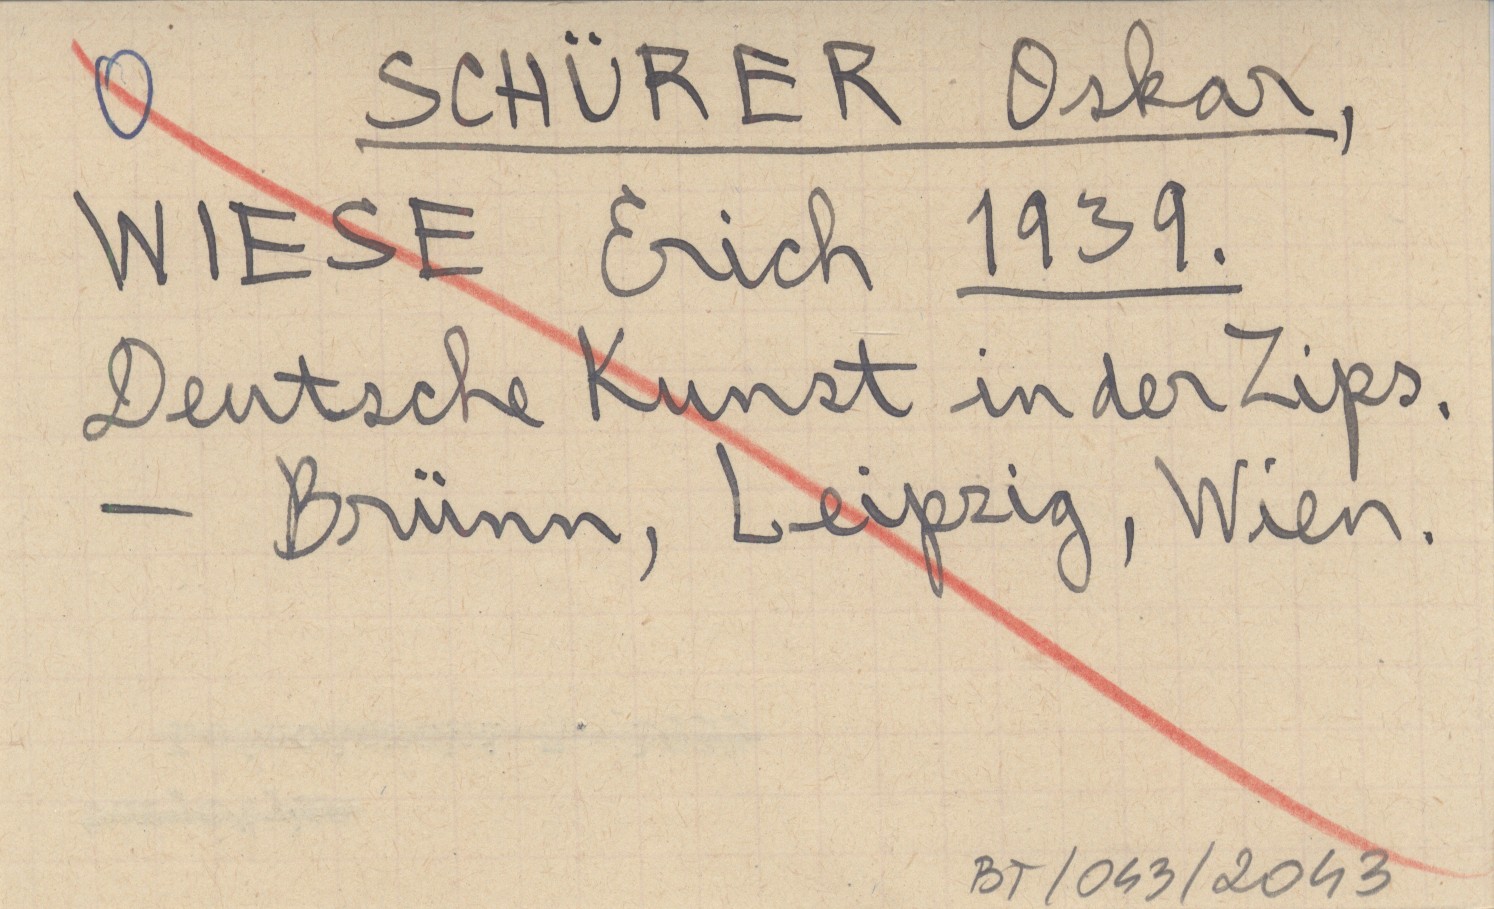 O SCHÜRER Oskar,
WIESE Erich 1939.
Deutsche Kunst in der Zips.
— Brünn, Leipzig, Wien.
BT/043/2043